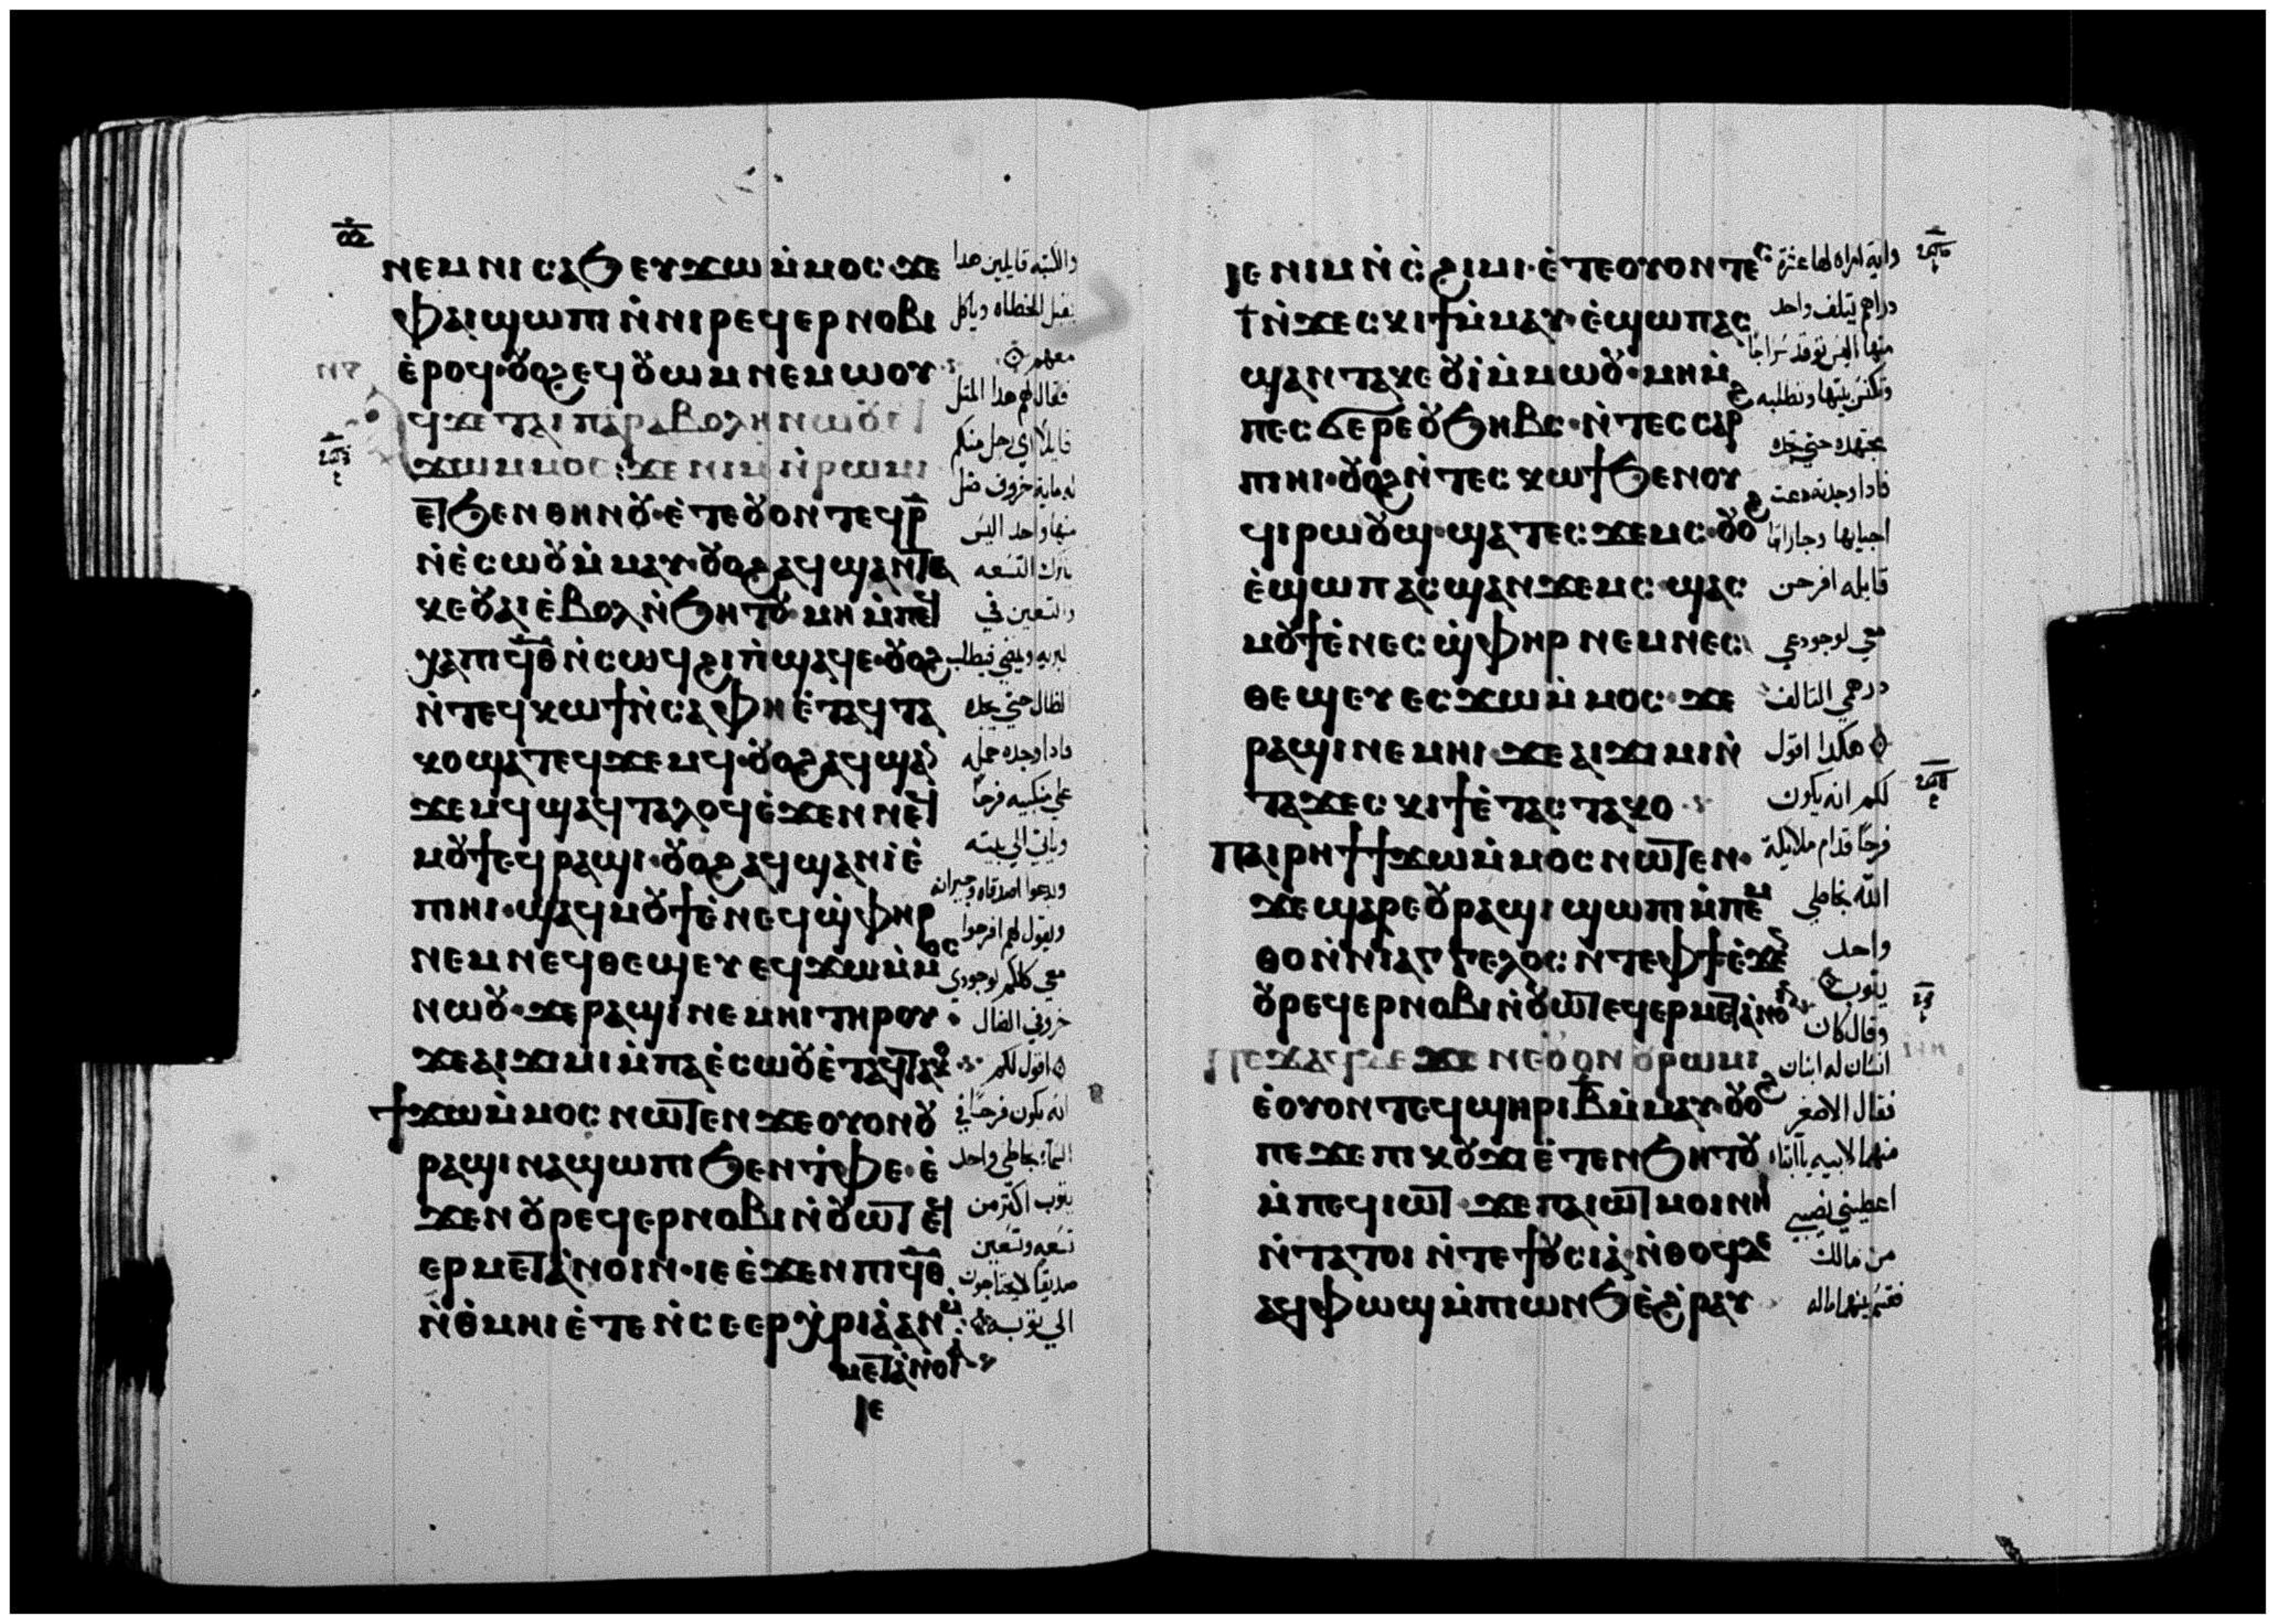 ⲛⲉⲙ ⲛⲓⲥⲁϧ ⲉⲩϫⲱ ⲙ̀ⲙⲟⲥ· ϫⲉ
ⲫⲁⲓ ϣⲱⲡⲓ ⲛ̀ⲛⲓⲣⲉϥⲉⲣⲛⲟⲃⲓ
ⲉ̀ⲣⲟϥ· ⲟⲩⲟϩ ⲉϥⲟⲩⲱⲙ ⲛⲉⲙⲱⲟⲩ
ϥϫⲉ ⲧⲁⲓⲡⲁⲣⲁⲃⲟⲗⲏ ⲛⲱⲟⲩ ⲉϥ
ϫⲱ ⲙⲙⲟⲥ: ϫⲉ ⲛⲓⲙ ⲛ̀ⲣⲱⲙⲓ
ⲉⲧϧⲉⲛ ⲑⲏⲛⲟⲩ· ⲉ̀ⲧⲉⲟⲩⲟⲛⲧⲉϥ ⲣ̅
ⲛ̀ⲉ̀ⲥⲱⲟⲩ ⲙ̀ⲙⲁⲩ· ⲟⲩⲟϩ ⲁϥϣⲁⲛⲧⲉ
ⲕⲉ ⲟⲩⲁⲓ ⲉ̀ⲃⲟⲗ ⲛ̀ϧⲏⲧⲟⲩ ⲙⲏ ⲙ̀ⲡⲉϥ
ⲭⲁ ⲡⲓϥ̅ⲑ̅ ⲛ̀ⲥⲱϥ ϩⲓ ⲡ̀ϣⲁϥⲉ· ⲟⲩⲟϩ
ⲛ̀ⲧⲉϥⲕⲱϯ ⲛ̀ⲥⲁ ⲫⲏ ⲉ̀ⲧⲁϥⲧⲁ
ⲕⲟ ϣⲁⲧⲉϥϫⲉⲙϥ· ⲟⲩⲟϩ ⲁϥϣⲁⲛ
ϫⲉⲙϥ ϣⲁϥⲧⲁⲗⲟϥ ⲉ̀ϫⲉⲛ ⲛⲉϥ
ⲙⲟⲩϯ ⲉϥⲣⲁϣⲓ· ⲟⲩⲟϩ ⲁϥϣⲁⲛⲓ̀ ⲉ̀
ⲡⲏⲓ· ϣⲁϥⲙⲟⲩϯ ⲉ̀ⲛⲉϥϣ̀ⲫⲏⲣ
ⲛⲉⲙ ⲛⲉϥⲑⲉϣⲉⲩ ⲉϥϫⲱ ⲙ̀ⲙⲟⲥ
ⲛⲱⲟⲩ· ϫⲉ ⲣⲁϣⲓ ⲛⲉⲙⲏⲓ ⲧⲏⲣⲟⲩ·
ϫⲉ ⲁⲓϫⲓⲙⲓ ⲙ̀ⲡⲁⲉ̀ⲥⲱⲟⲩ ⲉ̀ⲧⲁϥⲧⲁⲕⲟ
ϯϫⲱ ⲙ̀ⲙⲟⲥ ⲛⲱⲧⲉⲛ ϫⲉ ⲟⲩⲟⲛ ⲟⲩ
ⲣⲁϣⲓ ⲛⲁϣⲱⲡⲓ ϧⲉⲛ ⲧ̀ⲫⲉ· ⲉ̀
ϫⲉⲛ ⲟⲩⲣⲉϥⲉⲣⲛⲟⲃⲓ ⲛ̀ⲟⲩⲱⲧ ⲉϥ
ⲉⲣⲙⲉⲧⲁ̀ⲛⲟⲓⲛ· ⲓⲉ ⲉ̀ϫⲉⲛ ⲡⲓϥ̅ⲑ̅
ⲛ̀ⲑ̀ⲙⲏⲓ ⲉ̀ⲧⲉⲛ̀ⲥⲉⲉⲣⲭ̀ⲣⲓⲁ̀ ⲁⲛ ⲙ̀
ⲙⲉⲧⲁ̀ⲛⲟⲓⲁ̀
ⲓⲉ
والكتبه قايلين هدا
يقبل الخطاه وياكل
معهم
فقال لهم هدا المثل
قايلا اي رجل منكم
له ماية خروف ضل
منها واحد اليس
يترك التسعه
والتسعين في
البريه ويمضي فيطلب
الضال حتي يجده
فادا وجده حمله
علي منكبيه فرحًا
وياتي الي بيته
ويدعوا اصدقاه وجيرانه
ويقول لهم افرحوا
معي كلكم لوجودي
خروفي الضال
اقول لكم
انه يكون فرحًا في
السماء بخاطي واحد
يتوب اكتر من
تسعه وتسعين
صديقًا لا يحتاجون
الي توبه
ⲓⲉ ⲛⲓⲙ ⲛ̀ⲥ̀ϩⲓⲙⲓ· ⲉ̀ⲧⲉⲟⲩⲟⲛⲧⲉⲥ
ⲓ̅ ⲛ̀ϫⲉⲥⲕⲓϯ ⲙ̀ⲙⲁⲩ· ⲉ̀ϣⲱⲡ ⲁⲥ
ϣⲁⲛⲧⲁⲕⲉ ⲟⲩⲓ̀ ⲙ̀ⲙⲱⲟⲩ· ⲙⲏ ⲙ̀
ⲡⲉⲥϭⲉⲣⲉ ⲟⲩϧⲏⲃⲥ· ⲛ̀ⲧⲉⲥⲥⲁⲣ
ⲡⲓⲏⲓ· ⲟⲩⲟϩ ⲛ̀ⲧⲉⲥⲕⲱϯ ϧⲉⲛ ⲟⲩ
ϥⲓⲣⲱⲟⲩϣ· ϣⲁⲧⲉⲥϫⲉⲙⲥ· ⲟⲩⲟϩ
ⲉ̀ϣⲱⲡ ⲁⲥϣⲁⲛϫⲉⲙⲥ· ϣⲁⲥ
ⲙⲟⲩϯ ⲉ̀ⲛⲉⲥϣ̀ⲫⲏⲣ ⲛⲉⲙ ⲛⲉⲥ
ⲑⲉϣⲉⲩ ⲉⲥϫⲱ ⲙ̀ⲙⲟⲥ· ϫⲉ
ⲣⲁϣⲓ ⲛⲉⲙⲏⲓ· ϫⲉ ⲁⲓϫⲓⲙⲓ ⲛ̀
ⲧⲁϫⲉⲥⲕⲓϯ ⲉ̀ⲧⲁⲥⲧⲁⲕⲟ·
ⲡⲁⲓⲣⲏϯ ϯϫⲱ ⲙ̀ⲙⲟⲥ ⲛⲱⲧⲉⲛ·
ϫⲉ ϣⲁⲣⲉ ⲟⲩⲣⲁϣⲓ ϣⲱⲡⲓ ⲙ̀ⲡⲉⲙ̀
ⲑⲟ ⲛ̀ⲛⲓⲁⲅⲅⲉⲗⲟⲥ ⲛ̀ⲧⲉ ⲫϯ ⲉ̀ϫⲉⲛ
ⲟⲩⲣⲉϥⲉⲣⲛⲟⲃⲓ ⲛ̀ⲟⲩⲱⲧ ⲉϥⲉⲣⲙⲉⲧⲁ̀ⲛⲟⲓⲛ
ⲡⲉϫⲁϥ ⲇⲉ ϫⲉ ⲛⲉⲟⲩⲟⲛ ⲟⲩⲣⲱⲙⲓ
ⲉ̀ⲟⲩⲟⲛⲧⲉϥ ϣⲏⲣⲓ ⲃ̅ ⲙ̀ⲙⲁⲩ· ⲟⲩⲟϩ
ⲡⲉϫⲉ ⲡⲓⲕⲟⲩϫⲓ ⲉ̀ⲧⲉⲛϧⲏⲧⲟⲩ
ⲙ̀ⲡⲉϥⲓⲱⲧ· ϫⲉ ⲡⲁⲓⲱⲧ ⲙⲟⲓ ⲛⲏⲓ
ⲛ̀ⲧⲁⲧⲟⲓ ⲛ̀ⲧⲉ ϯⲟⲩⲥⲓⲁ̀· ⲛ̀ⲑⲟϥ ⲇⲉ
ⲁϥⲫⲱϣ ⲙ̀ⲡⲓⲱⲛϧ ⲉ̀ϩ̀ⲣⲁⲩ
واية امراه لها عشرة
دراهم يتلف واحد
منها اليس توقد سراجًا
وتكنس بيتها وتطلبه
مجتهده حتي تجده
فادا وجدته دعت
احبايها وجاراتها
قايله افرحن
معي لوجودي
درهمي التالف
هكدا اقول
لكم انه يكون
فرحًا قدام ملايكة
الله بخاطي
واحد
يتوب
وقال كان
انسان له ابنان
فقال الاصغر
منهما لابيه يا ابتاه
اعطيني نصيبي
من مالك
فقسم بينهما ماله